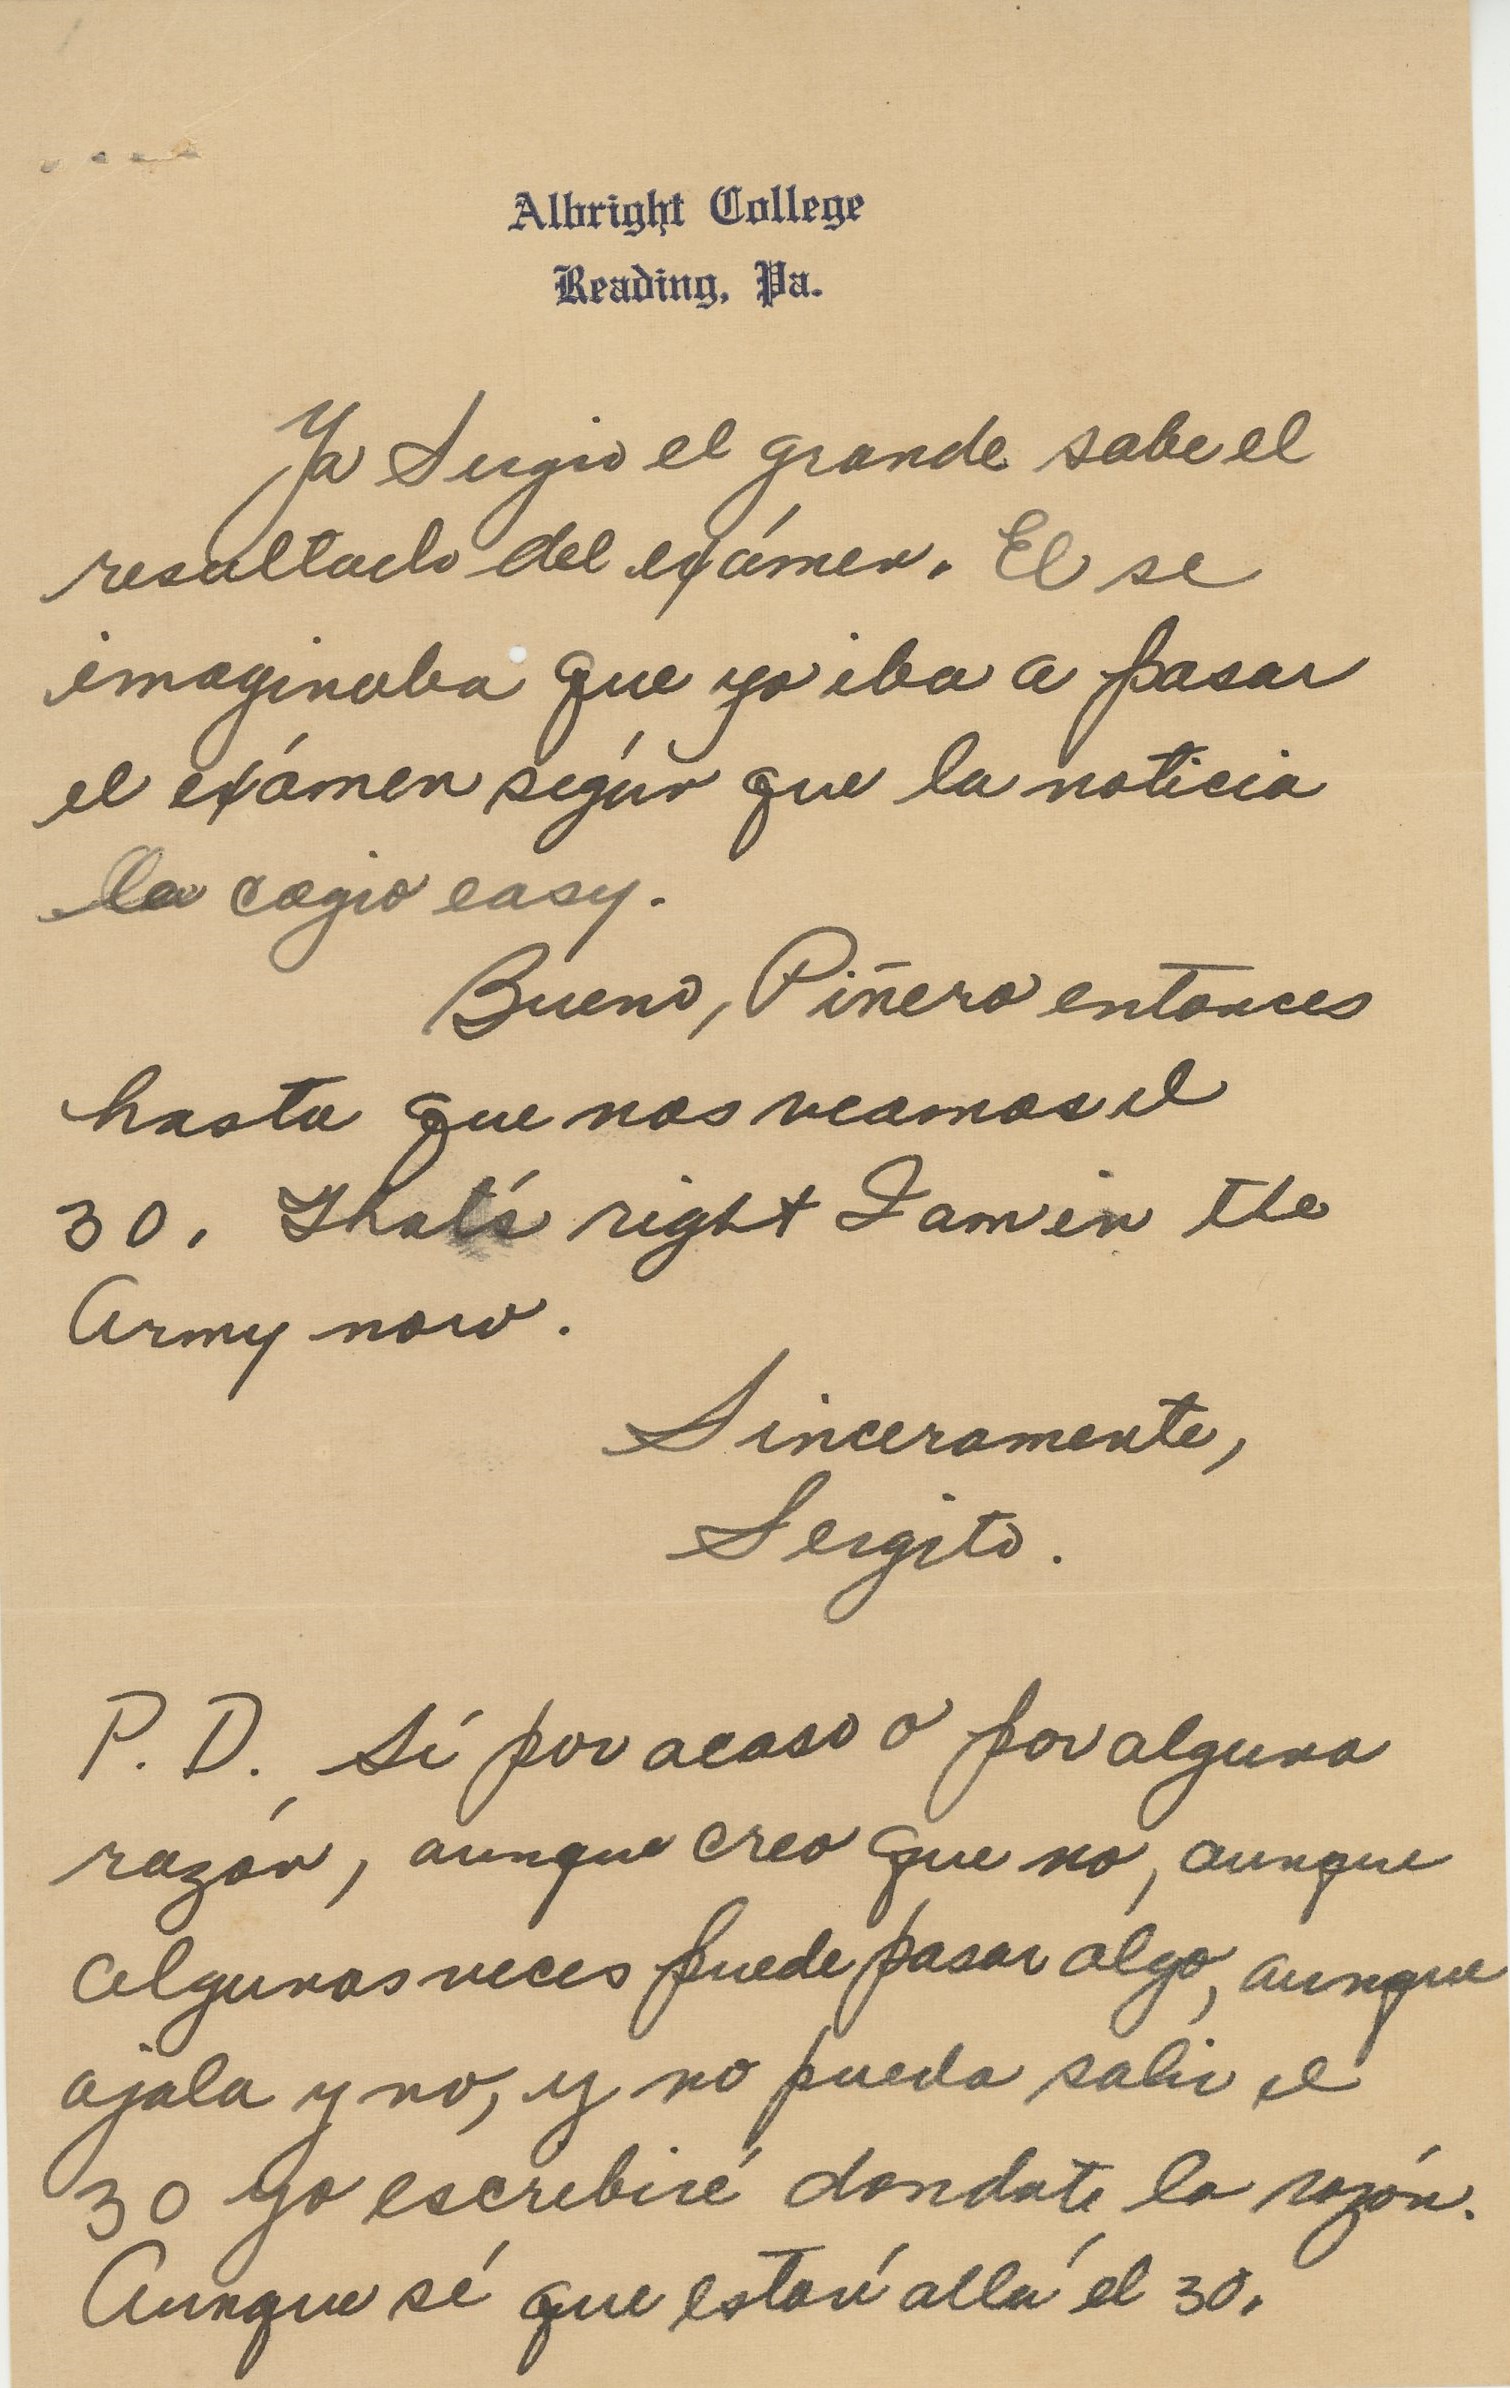 Albright College
Reading, Pa.
Ya Sergio el grande sabe el
resultado del exámen. El se
imaginaba que yo iba a pasar
el exámen según que la noticia
la cogio easy.
Bueno, Piñero entonces
hasta que nos veamos el
30. That's right I am in the
Army now.
Sinceramente,
Sergito.
P. D. Sí por acaso o por alguna
razón, aunque creo que no, aunque
algunas veces puede pasar algo, aunque
ojala y no, y no pueda salir el
30 yo escribiré dandote la razón.
Aunque sé que estaré allá el 30.